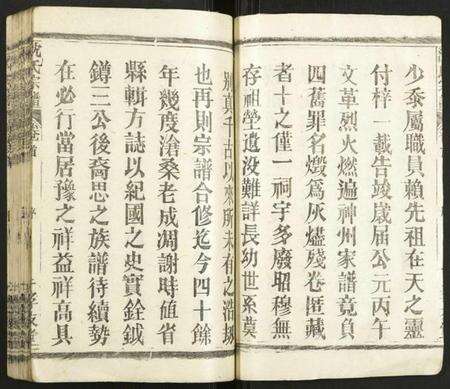 少忝屬職員賴先祖在天之靈
付梓一載告竣歲屆公元丙午
文革烈火燃遍神州家譜竟負
四舊罪名燬爲灰燼殘卷匿藏
者十之僅一祠宇多廢昭穆無
存祖塋遺没難詳長幼世系莫
真千古以來所未有之浩
也再則宗譜合修迄今四十餘
年幾度滄桑老成凋謝時値省
縣輯方誌以紀國之史實銓鉞
鐏三公後裔思之族譜待續勢
在必行當居豫之祥益祥高具
氏宗譜 卷首 序